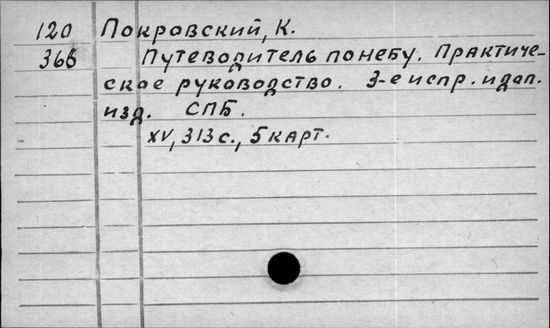 120 Покровский, К.
366 Путеводитель по небу. Практиче-
ское руководство. 3-е испр. и доп.
изд. СПБ.
XV, 313 с., 5 карт.